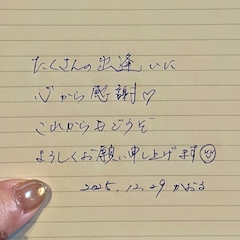 たくさんの出逢いに
心から感謝♡
これからもどうぞ
よろしくお願い申し上げます☺
2025.12.29 かおる